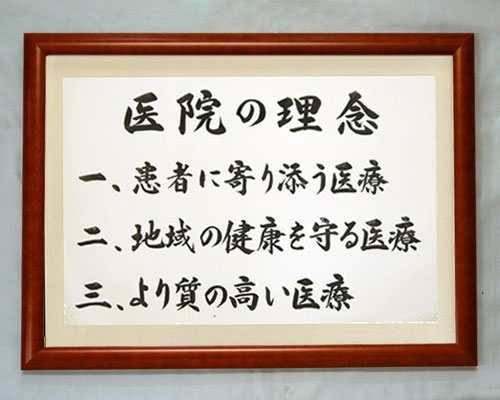 医院の理念
一、患者に寄り添う医療
二、地域の健康を守る医療
三、より質の高い医療